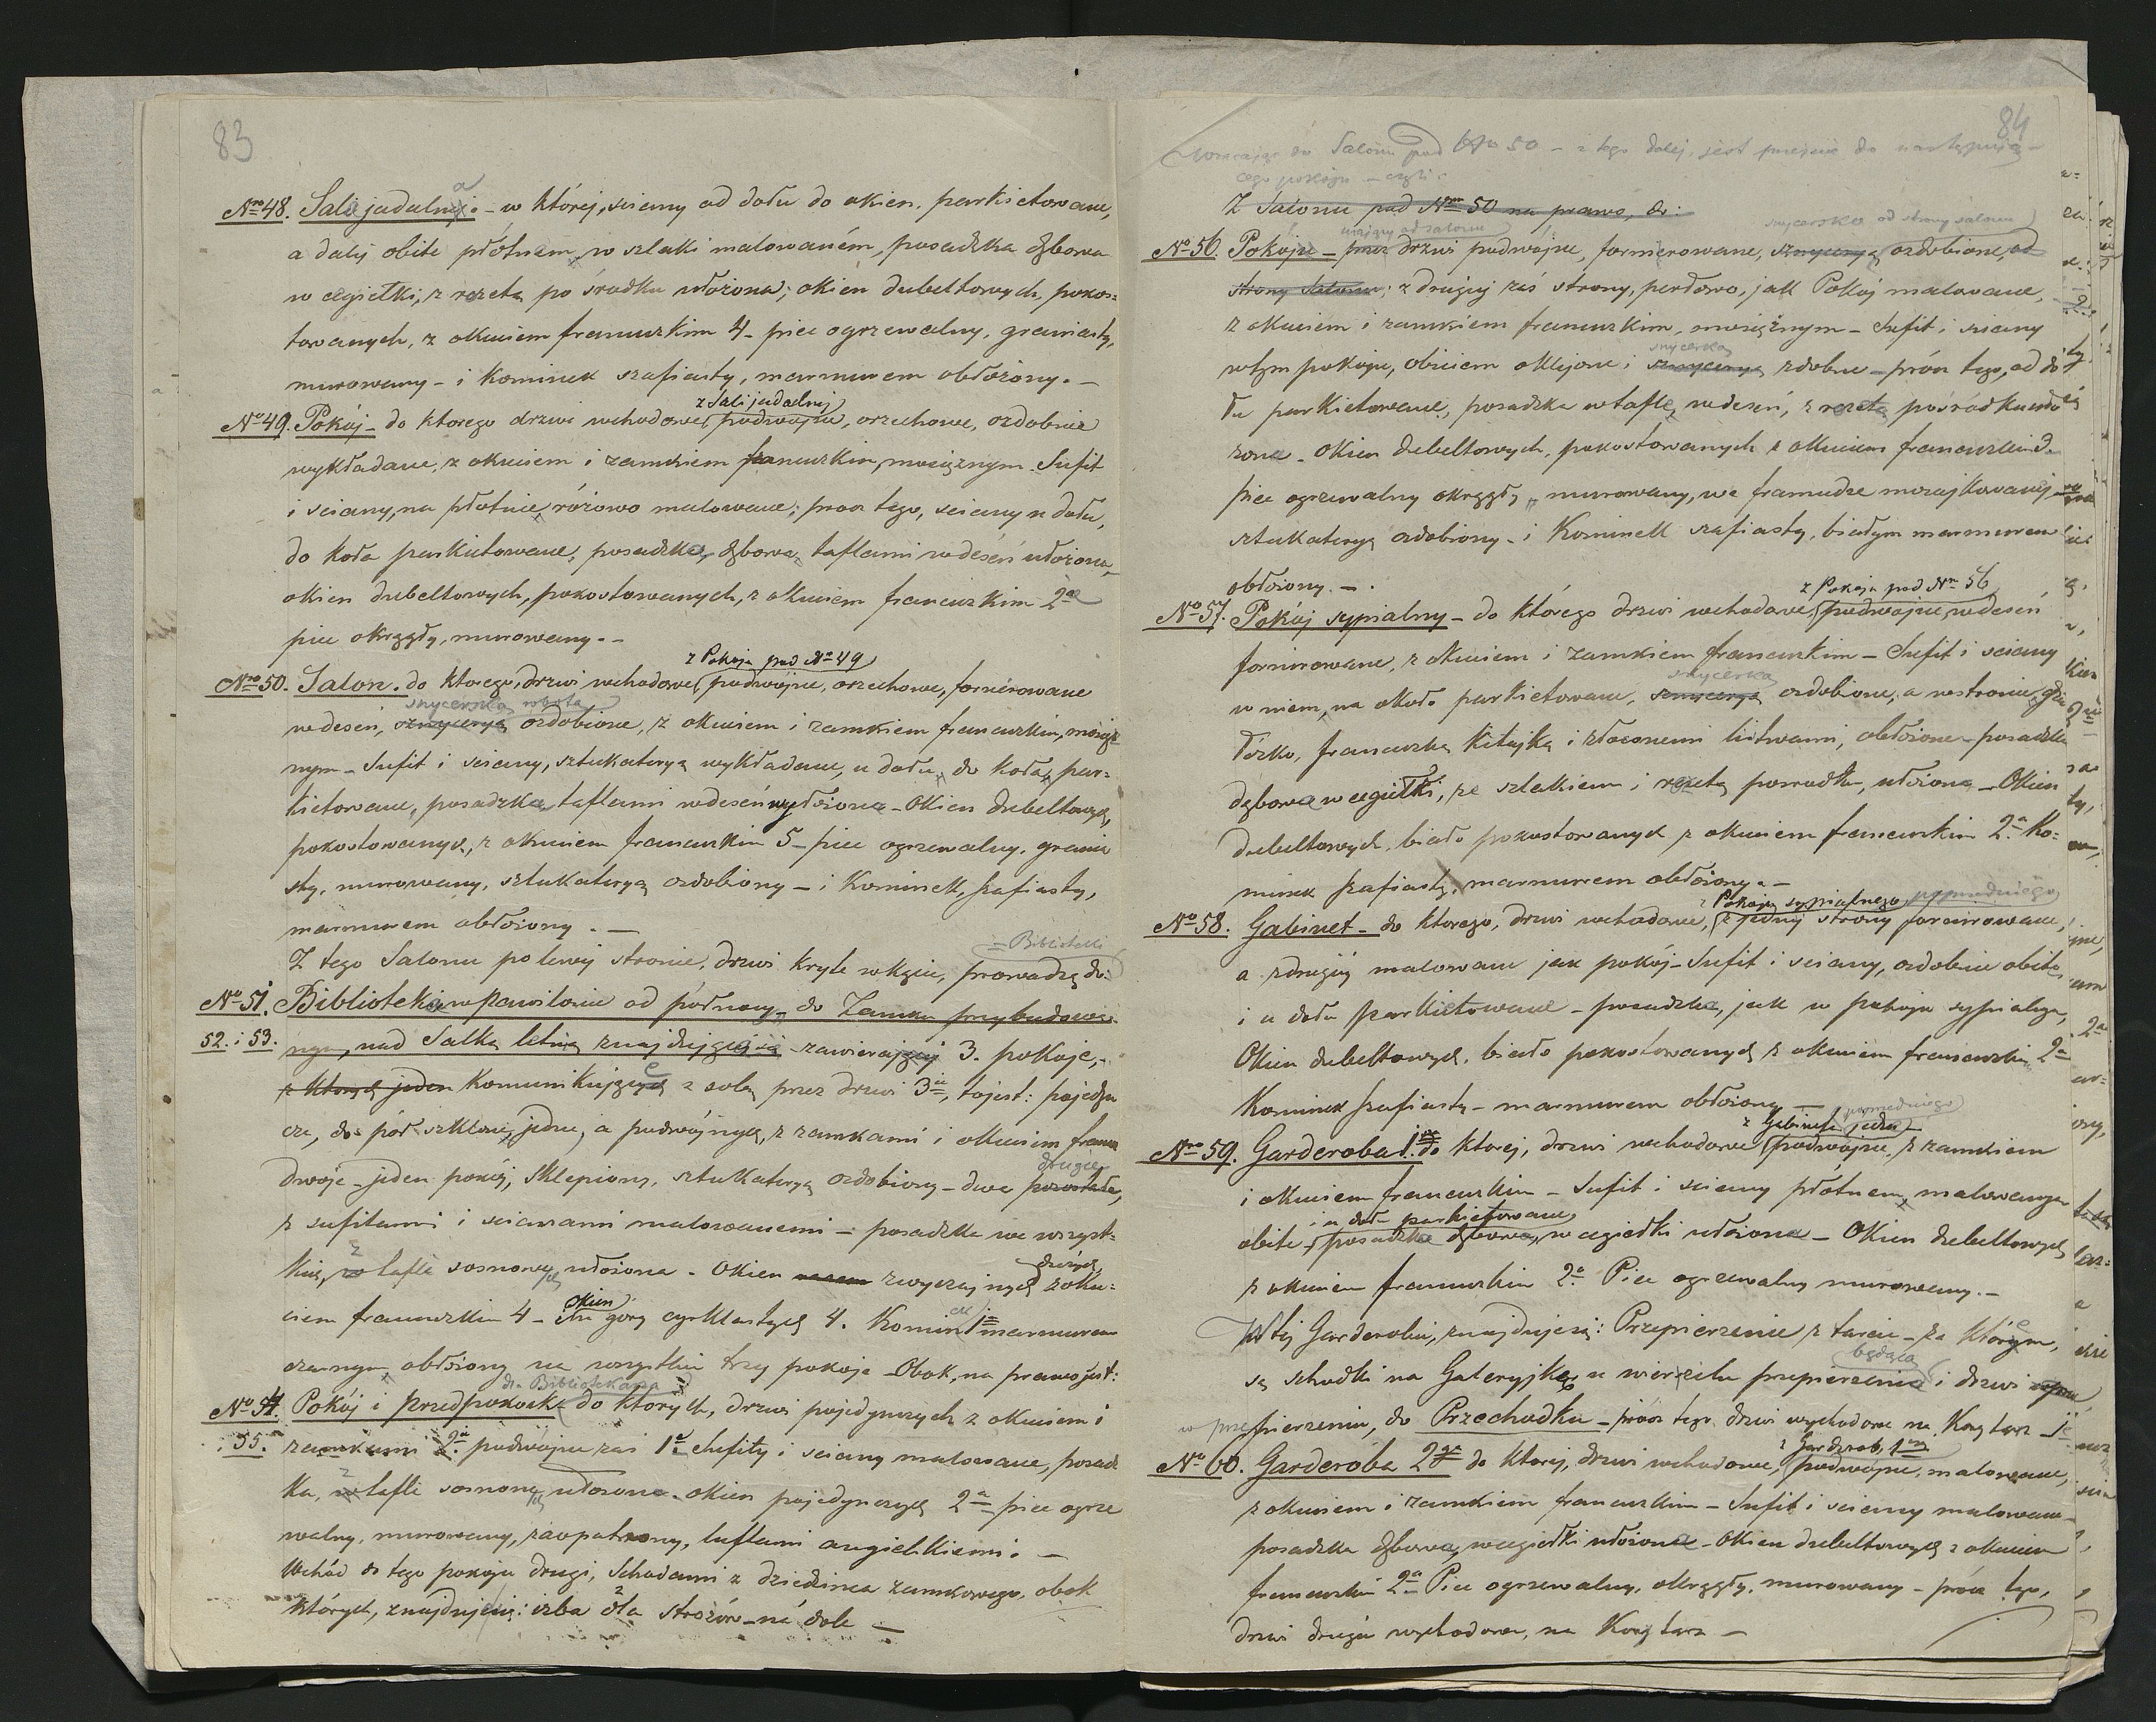 83
Nro 48. Sala jadalna - w której, sciany od dołu do okien parkietowane,
a daléj obite płótnem, w szlaki malowaném, posadzka dębowa
w cegiełki, z rozetą po środku ułożona; okien dubeltowych, pokos=
towanych, z okuciem francuzkim 4 - piec ogrzewalny, graniasty,
murowany - i Kominek szafiasty, marmurem obłożony. -
z Sali jadalnej
No 49. Pokój - do ktorego drzwi wchodowe podwójne, orzechowe, ozdobnie
wykładane, z okuciem i zamkiem francuzkim, mosiężnym. Sufit
i sciany, na płotnie, różowo malowane; procz tego, sciany u dołu,
do koła parkietowane, posadzka, dębowa, taflami w deseń ułożona,
okien dubeltowych, pokostowanych, z okuciem francuzkim 2a
piec okrągły, murowany. -
z Pokoju pod No 49
Nro 50. Salon. do ktorego, drzwi wchodowe podwójne, orzechowe, fornérowane
snycerską robotą
w deseń, sznyceryą ozdobione, z okuciem i zamkiem francuzkim, mosięż
nym - Sufit i sciany, sztukateryą wykładane, u dołu, do koła, par=
kietowane, posadzka, taflami w deseń wyłożona - Okien dubeltowych,
pokostowanych, z okuciem francuzkim 5 - piec ogrzewalny, grania
sty, murowany, sztukateryą ozdobiony - i Kominek, szafiasty,
marmurem obłożony. -
- Biblioteki
Z tego Salonu po lewéj stronie, drzwi kryte w kącie, prowadzą do:
No 51. Biblioteka w Pawilonie od północy - do Zamku przybudowa=
52. i 53. nym, nad Salką letnią znajdująca się - zawierający 3. pokoje, -
z ktorych jeden Komunikujące z sobą przez drzwi 3a, to jest: pojedyn
cze, do pół szklone, jedne, a podwójnych, z zamkami i okuciem franc
drugie
dwoje - jeden pokój, sklepiony, sztukateryą ozdobiony - dwa pozostałe,
z sufitami i scianami malowanemi - posadzka we wszyst=
kich, z tafli sosnowych, ułożona - Okien zwyczajnych z oku=
okien
ciem francuzkim 4 - u góry cyrklastych 4. Kominek 1 marmurem
czarnym, obłożony na wszystkie trzy pokoje - Obok, na prawo jest:
dla Bibliotekarza
No 54. Pokój i Przedpokoik do ktorych, drzwi pojedynczych z okuciem i
i 55. zamkami 2a podwójne zaś 1a Sufity i sciany malowane, posadz
ka, z tafli sosnowych ułożona - okien pojedynczych 2a piec ogrze
walny, murowany, zaopatrzony, luftami angielskiemi. -
Wchód do tego pokoju drugi, Schodami z dziedzińca zamkowego, obok
których, znajduje się: izba dla strożów - na dole -
84
Wracając do Salonu pod Nro 50 - z tego daléj, jest przejscie do następują-
cego pokoju - czyli:
Z Salonu pod Nrem 50 na prawo, do:
snycersko od strony salonu
No 56. Pokoju - przez drzwi podwójne, fornierowane, sznyceryą ozdobione, od
strony Salonu; z drugiej zaś strony, perłowo, jak Pokój malowane,
z okuciem i zamkiem francuzkim, mosiężnym - Sufit i sciany
snycerką
w tym pokoju, obiciem oklejone i sznyceryą zdobne - prócz tego, od do
łu parkietowane, posadzka w tafle, w deseń, z rozetą pośrodku uło
żona - Okien dubeltowych, pokostowanych z okuciem francuzkim 3.
piec ogrzewalny okrągły, murowany, we framudze mozajkowanej
sztukateryą ozdobiony - i Kominek szafiasty, białym marmurem
obłożony. -
z Pokoju pod Nr 56
No 57. Pokój sypialny - do którego drzwi wchodowe, podwójne, w deseń
fornirowane, z okuciem i zamkiem francuzkim - Sufit i sciany
snycerką
w niem, na około parkietowane, sznyceryą ozdobione, a w stronie, gdzie
łóżko, francuzką Kitajką i złoconemi listwami, obłożone - posadzka
dębowa w cegiełki, ze szlakiem i rozetą posrodku, ułożona - Okien
dubeltowych, biało pokostowanych z okuciem francuzkim 2a Ko=
minek szafiasty, marmurem obłożony. -
z Pokoju sypialnego
No 58. Gabinet - do ktorego, drzwi wchodowe, z jednej strony fornirowane,
a z drugiéj malowane jak pokój - Sufit i sciany, ozdobnie obite,
i u dołu parkietowane - posadzka, jak w pokoju sypialnym,
Okien dubeltowych, biało pokostowanych z okuciem francuzkim 2a
Kominek szafiasty - marmurem obłożony -
z Gabinetu
No 59. Garderoba 1sza do ktorej, drzwi wchodowe podwójne, z zamkiem
i okuciem francuzkim - Sufit i sciany płótnem, malowanym
i u dołu parkietowane
obite, posadzka dębowa, w cegiełki ułożona - Okien dubeltowych
z okuciem francuzkim 2a Piec ogrzewalny murowany. -
W tej Garderobie, znajduje się: Przepierzenie z tarcic - za którym,
będącą
są schodki na Galeryjkę u wierzchu przepierzenia i drzwi
w przepierzeniu, do Przechodka - prócz tego drzwi wychodowe na Korytarz 1e
z Garderob. 1ej
No 60. Garderoba 2ga do ktorej, drzwi wchodowe, podwójne, malowane,
z okuciem i zamkiem francuzkim - Sufit i sciany malowane -
posadzka dębowa, w cegiełki ułożona - Okien dubeltowych z okuciem
francuzkim 2a Piec ogrzewalny, okrągły, murowany - prócz tego,
drzwi drugie wychodowe, na Korytarz -